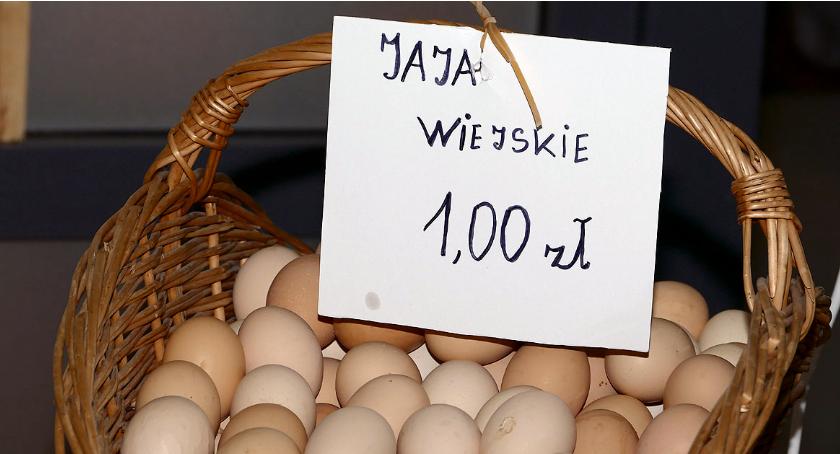 JAJA
WIEJSKIE
1,00 zł